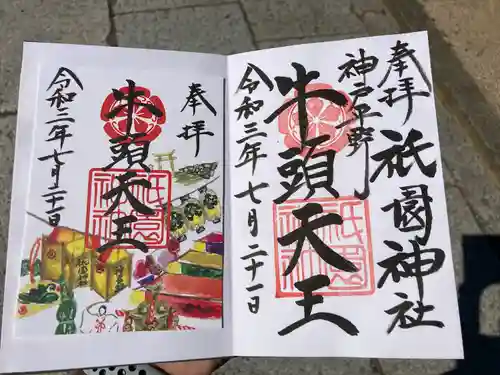 奉拝
神戸平野
祇園神社
牛頭天王
令和三年七月二十一日
奉拝
牛頭天王
令和三年七月二十一日